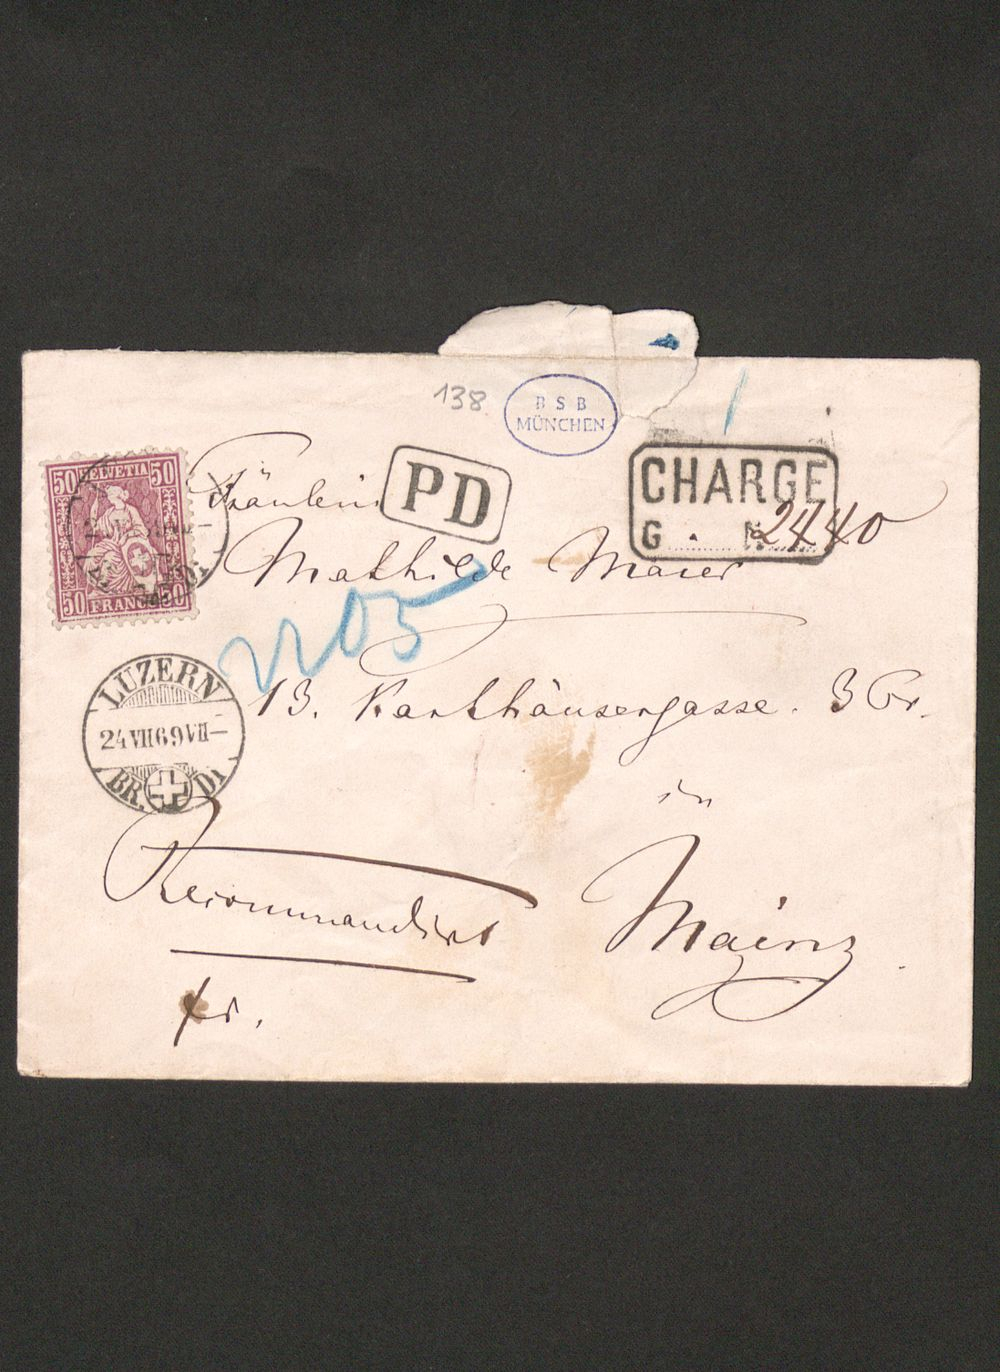 138
B S B
MÜNCHEN
50 HELVETIA 50
50 FRANCO 50
Fräulein
PD
CHARGE
G N
Mathilde Maier
1205
13. Karthäusergasse. 3 Gr.
LUZERN
24 VII 69 VII
BR. DI
in
Mainz.
Recommandirt
fr.